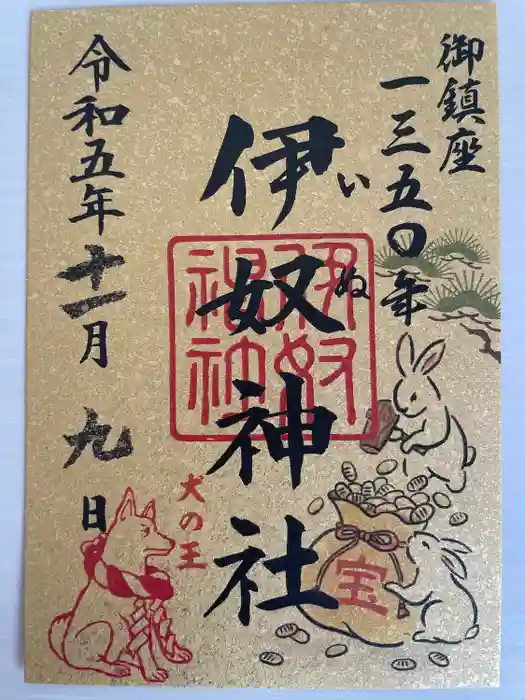 御鎮座
一三五〇年
伊奴神社
いぬ
伊奴
神社
令和五年十一月九日
犬の王
宝